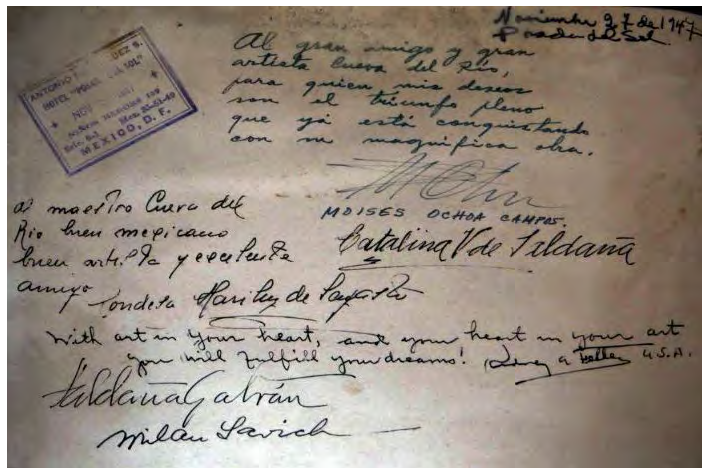 Noviembre 27 de 1947
Posada del Sol
ANTONIO
DEZ S.
HOTEL "POSADA DEL SOL"
NOV
MEXICO, D. F.
Al gran amigo y gran
artista Cueva del Río,
para quien mis deseos
son el triunfo pleno
que ya está conquistando
con su magnifica obra.
MOISES OCHOA CAMPOS.
al maestro Cueva del
Rio buen mexicano
buen artista y excelente
amigo
Catalina V de Saldaña
Condesa Mariluz de
With art in your heart, and your heart in your art
you will fulfill your dreams! U.S.A.
Saldaña Galván
Milan Savich